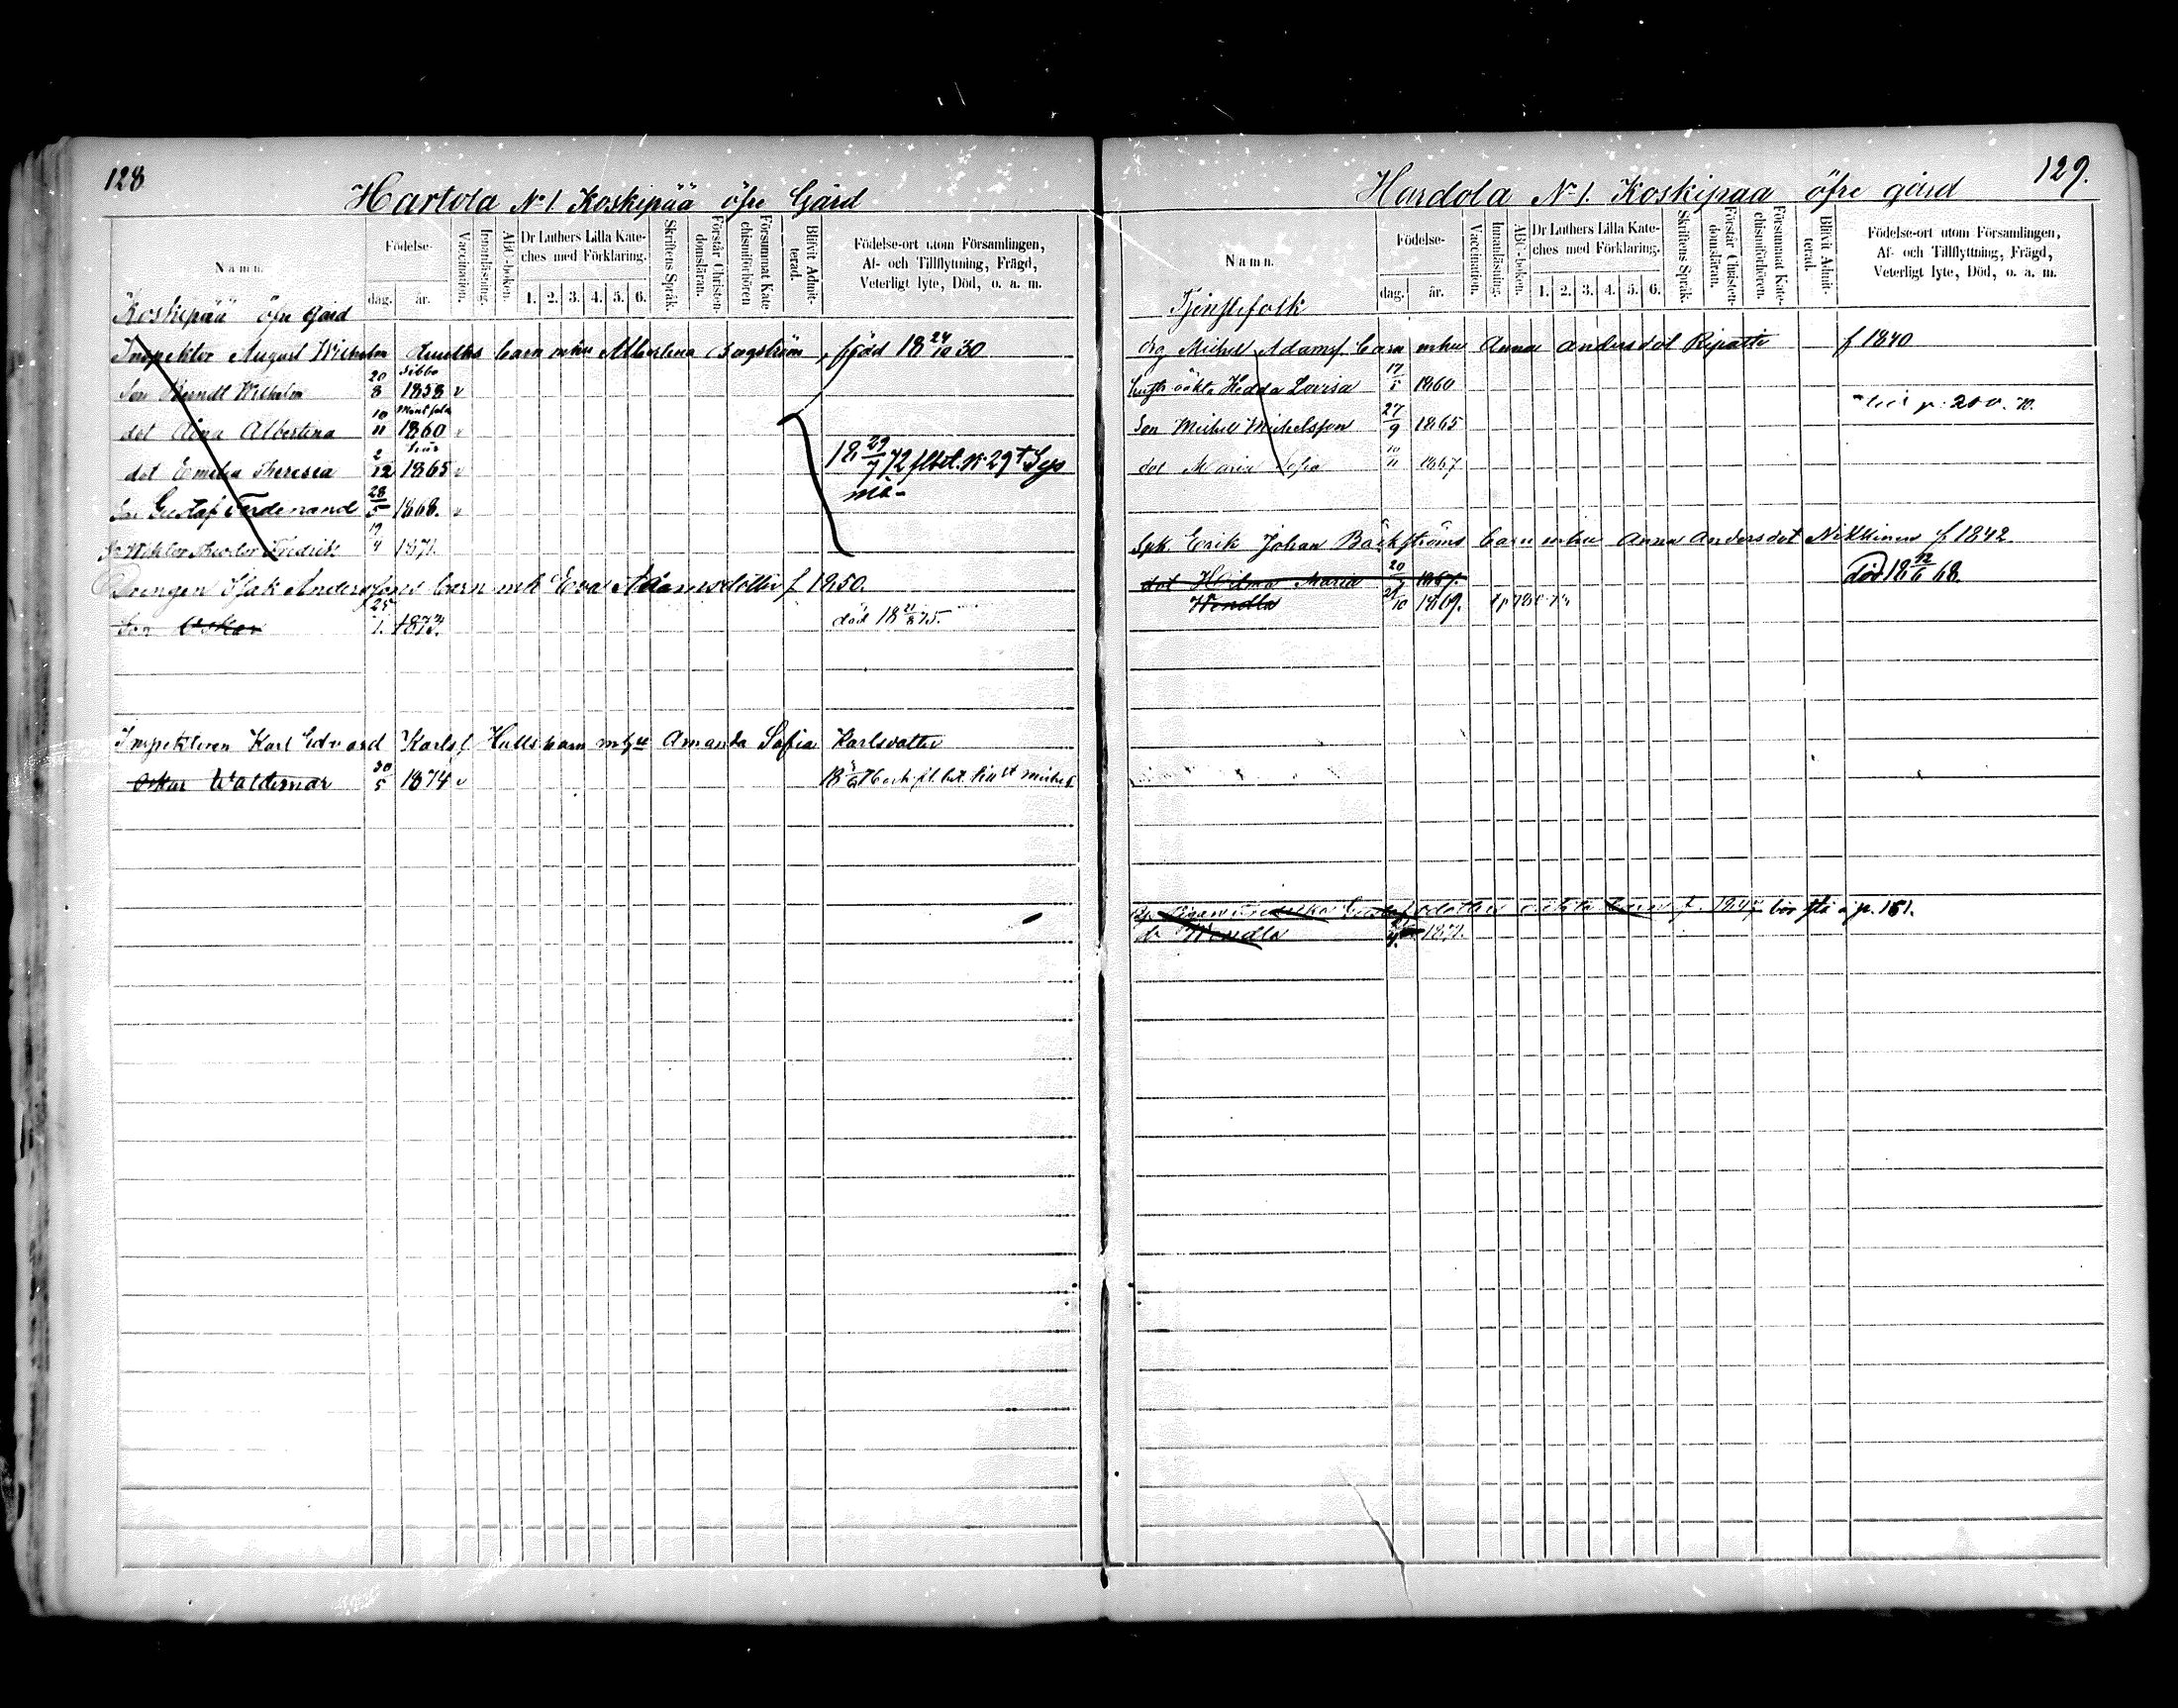 128
Hartola No 1 Koskipää öfre Gård
Namn.
Födelse-
dag.
år.
Vaccination.
Innanläsning.
ABC-boken.
Dr Luthers Lilla Kate-
ches med Förklaring.
1. 2. 3. 4. 5. 6.
Skriftens Språk.
Förstår Christen-
domsläran.
Försummat Kate
chismiförhören
Blifvit Admit-
terad.
Födelse-ort utom Församlingen,
Af- och Tillflyttning, Frägd,
Veterligt lyte, Död, o. a. m.
Koskipää öfre Gård
Inspektor August Wilhelm barn mhu Albertina född 18 24/10 30
Sibbo
Son Berndt Wilhelm 20/8 1858 v
dot Aina Albertina 10/11 1860 v
dot Emilia Theresia 2/12 1865 v
18 29/7 72 flbet. No 29 t
Son Gustaf Ferdinand 28/5 1868. v
Fredrik 19/4 1871.
Drengen Isak Anderssons barn mh Eva Adamsdotter f 1850.
Son Oskar 25/1. 1873. död 18 21/8 75.
Inspektoren Karl Edvard Karlss. barn m hu Amanda Sofia Karlsdotter
Oskar Waldemar 30/5 1874 v
129.
Hardola No 1. Koskipaa öfre gård
Namn.
Födelse-
dag.
år.
Vaccination.
Innanläsning.
ABC-boken.
Dr Luthers Lilla Kate-
ches med Förklaring.
1. 2. 3. 4. 5. 6.
Skriftens Språk.
Förstår Christen-
domsläran.
Försummat Kate-
chismiförhören.
Blifvit Admit-
terad.
Födelse-ort utom Församlingen,
Af- och Tillflyttning, Frägd,
Veterligt lyte, Död, o. a. m.
Tjenstefolk
drg Michel Adamss. barn mhu Anna Andersdot Ripatti f 1840
oäkta Hedda Lovisa 17/5 1860
p. 200.
Son Michel Michelsson 27/9 1865
dot Maria Sofia 10/11 1867
Spk. Erik Johan Bäckströms barn mhu Anna Andersdot Nikkinen f. 1842
dot Hilma Maria 20/1867. död 18 12/6 68
Wendla 29/10 1869.
Fredrika oäkta barn f. bör stå å p. 151.
dr Wendla 1871.